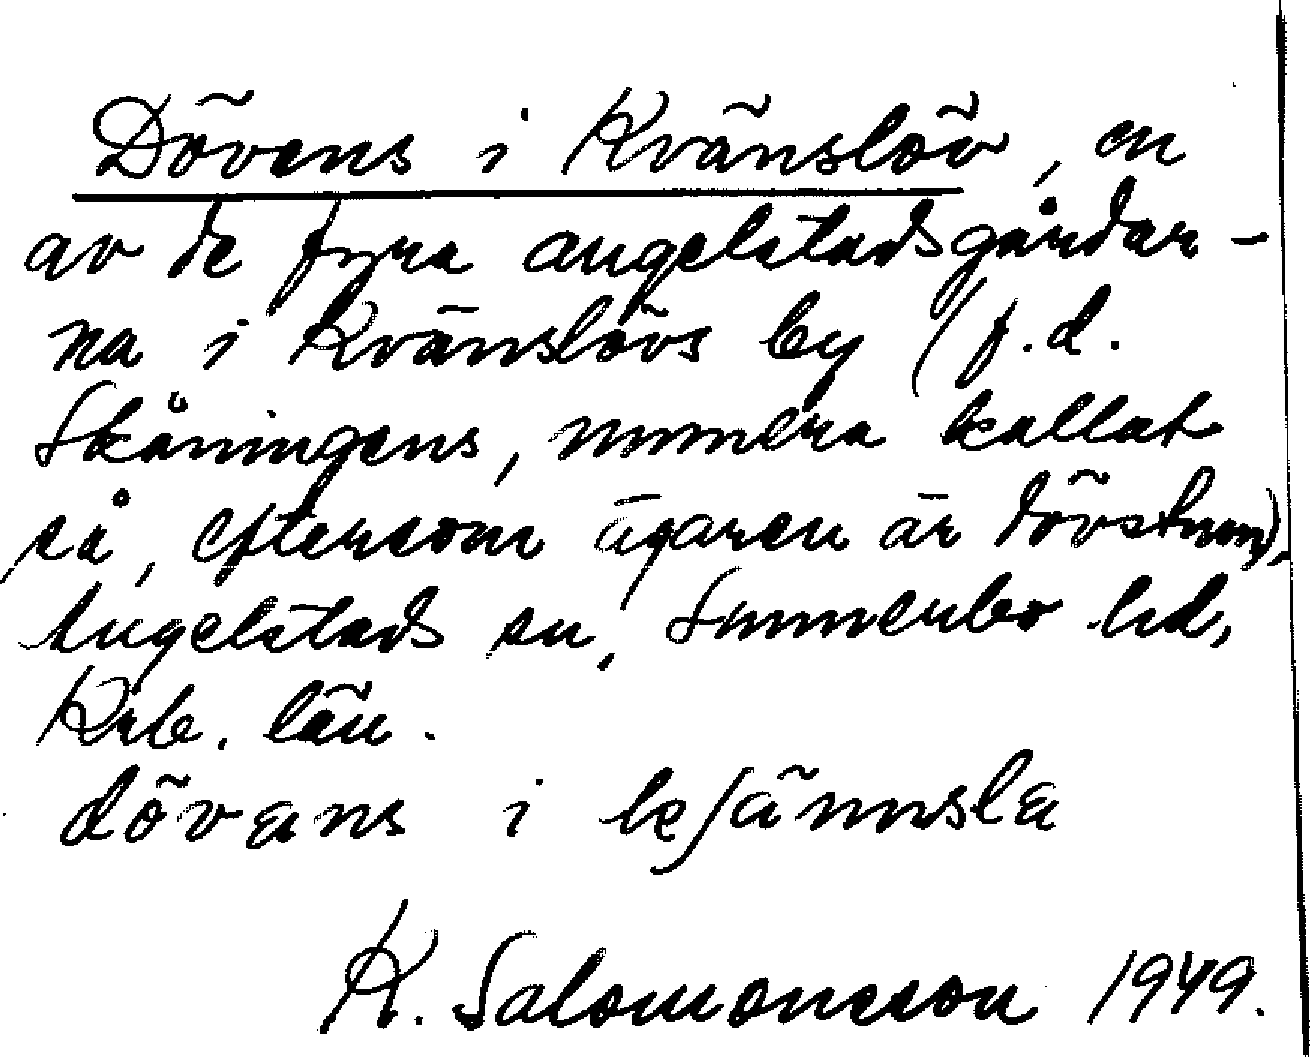 Dövens i Kvänslöv, en
av de fyra angelstadsgårdar-
na i Kvänslövs by (f.d.
Skåningens, numera kallat
så, eftersom ägaren är dövstum),
Angelstads sn, Sunnerbo hd,
Krb. län.
dövans i
K. Salomonsson 1949.